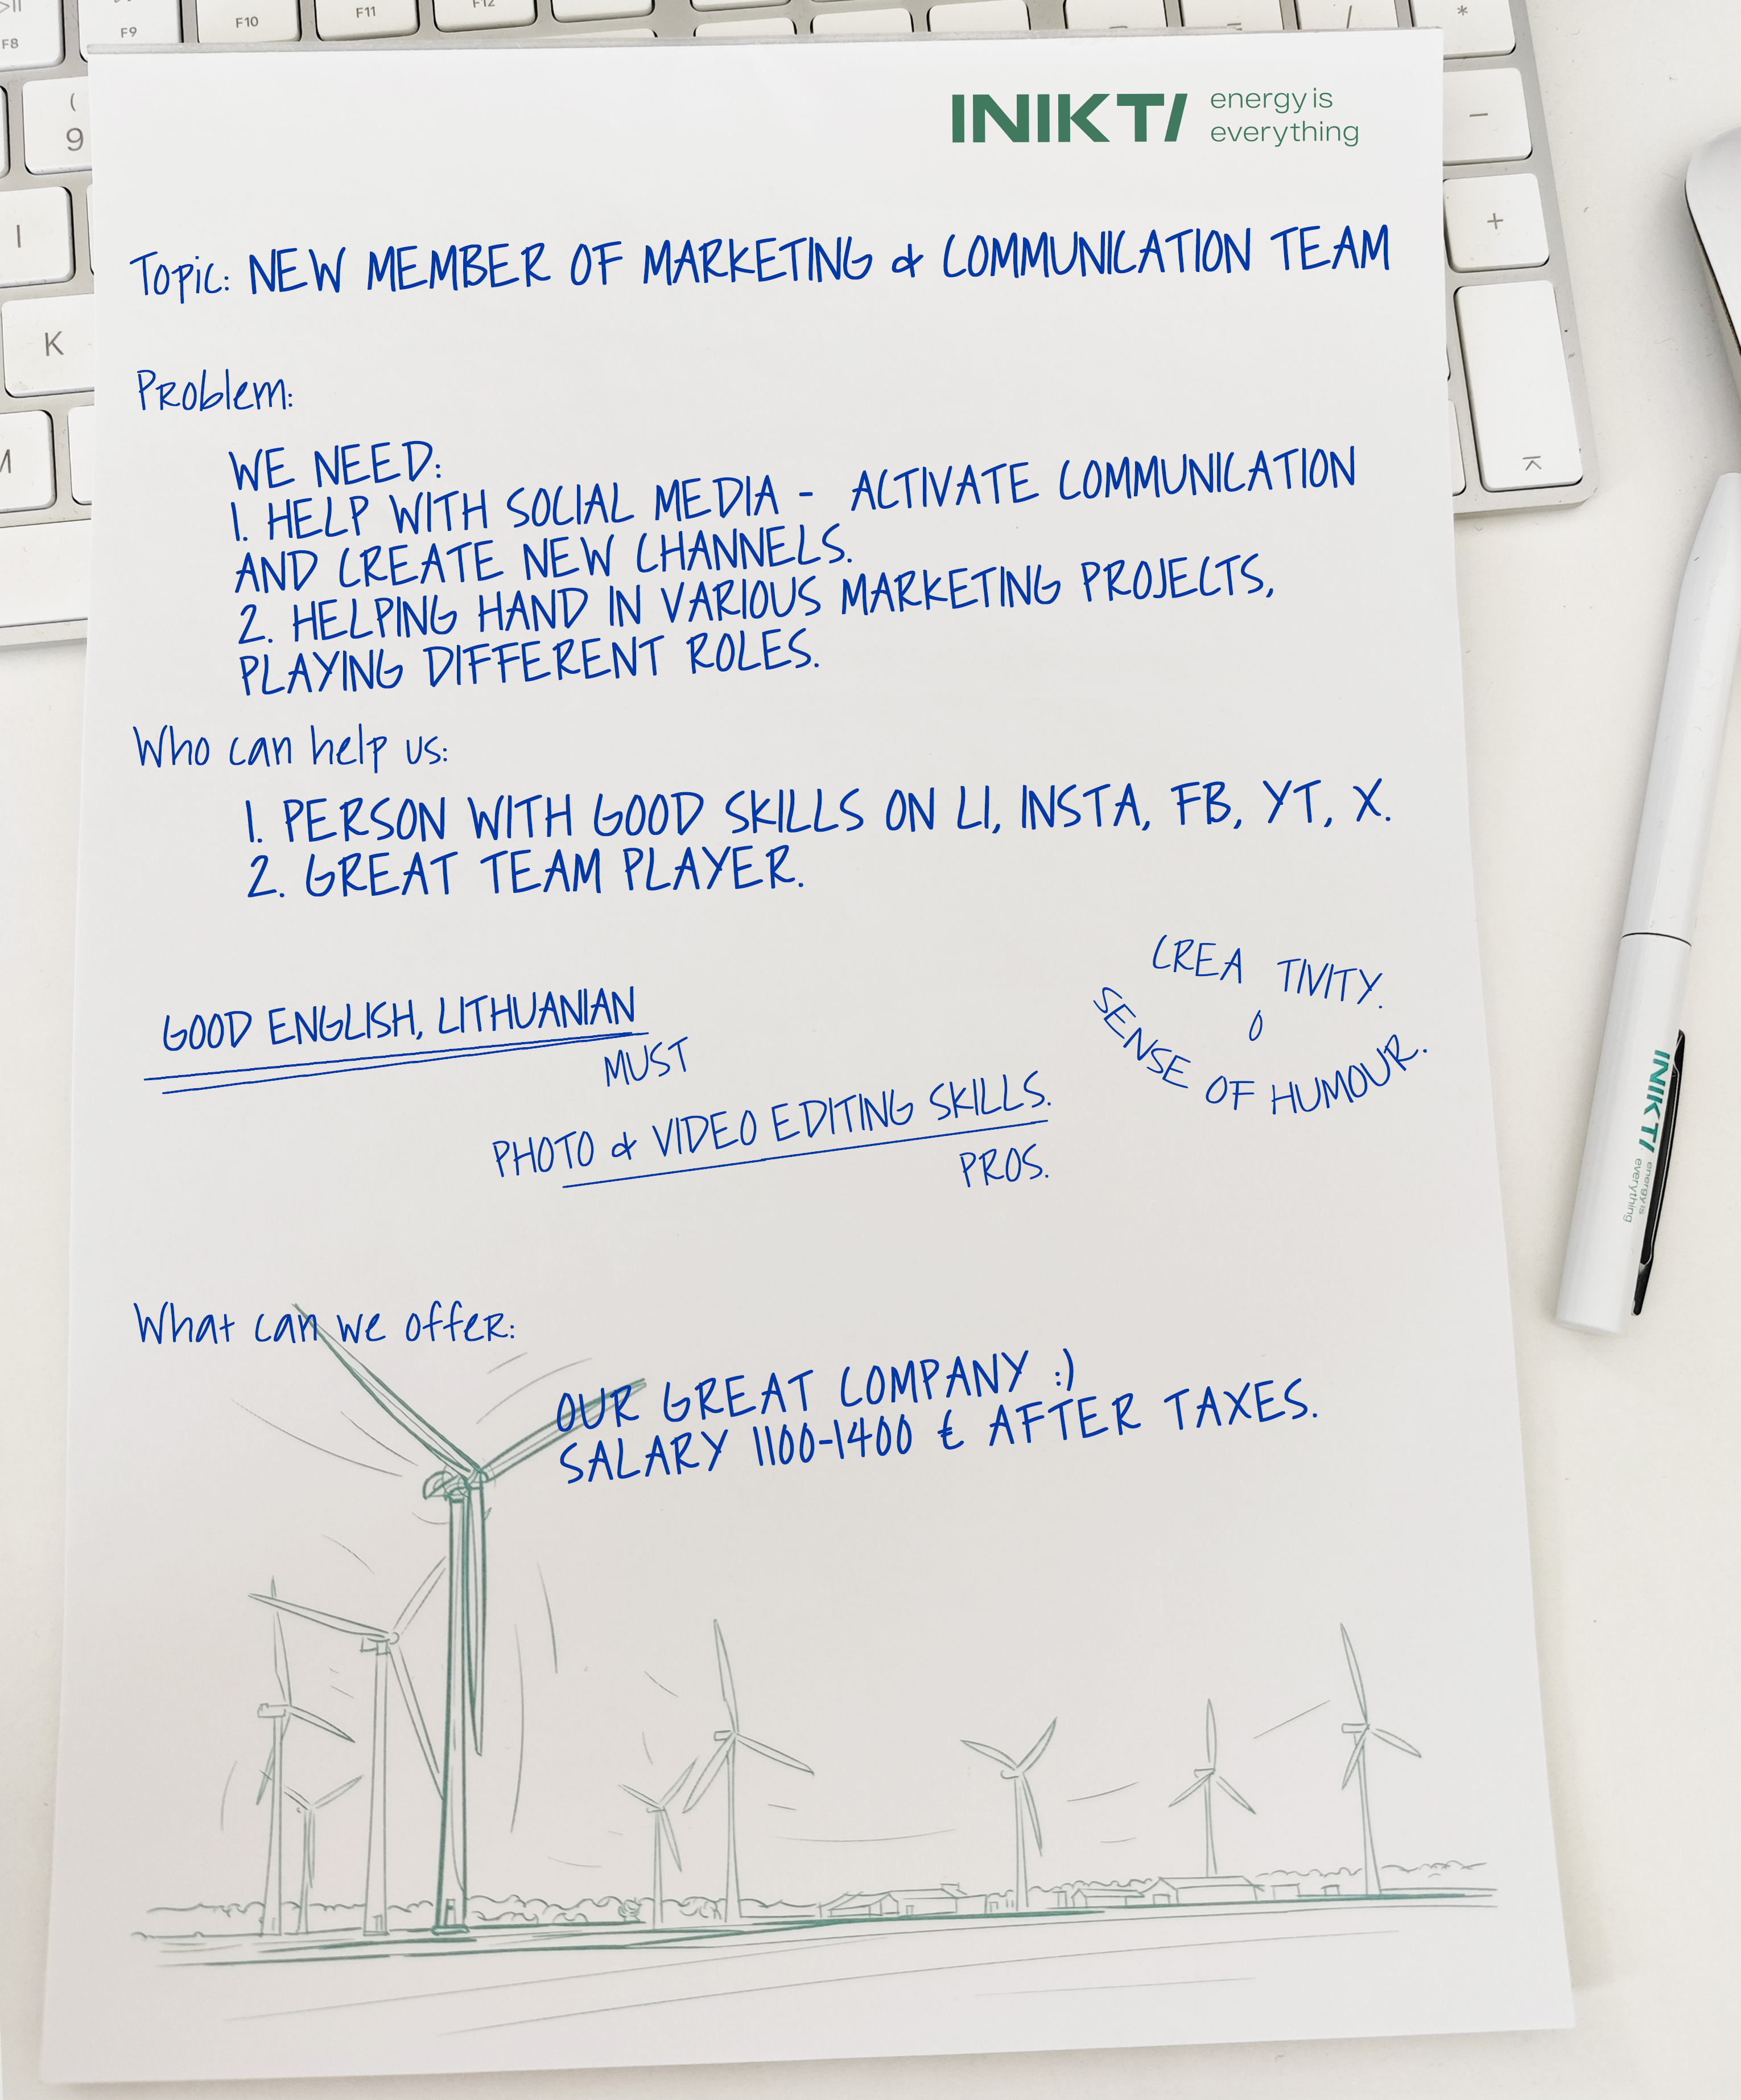 F8
F9
F10
F11
F12
*
(
9
-
I
+
K
INIKTI energy is
everything
Topic: NEW MEMBER OF MARKETING & COMMUNICATION TEAM
Problem:
WE NEED:
1. HELP WITH SOCIAL MEDIA - ACTIVATE COMMUNICATION
AND CREATE NEW CHANNELS.
2. HELPING HAND IN VARIOUS MARKETING PROJECTS,
PLAYING DIFFERENT ROLES.
Who can help us:
1. PERSON WITH GOOD SKILLS ON LI, INSTA, FB, YT, X.
2. GREAT TEAM PLAYER.
CREA TIVITY.
SENSE OF HUMOUR.
GOOD ENGLISH, LITHUANIAN
MUST
PHOTO & VIDEO EDITING SKILLS.
PROS.
INIKTI energy is
everything
What can we offer:
OUR GREAT COMPANY :)
SALARY 1100-1400 € AFTER TAXES.